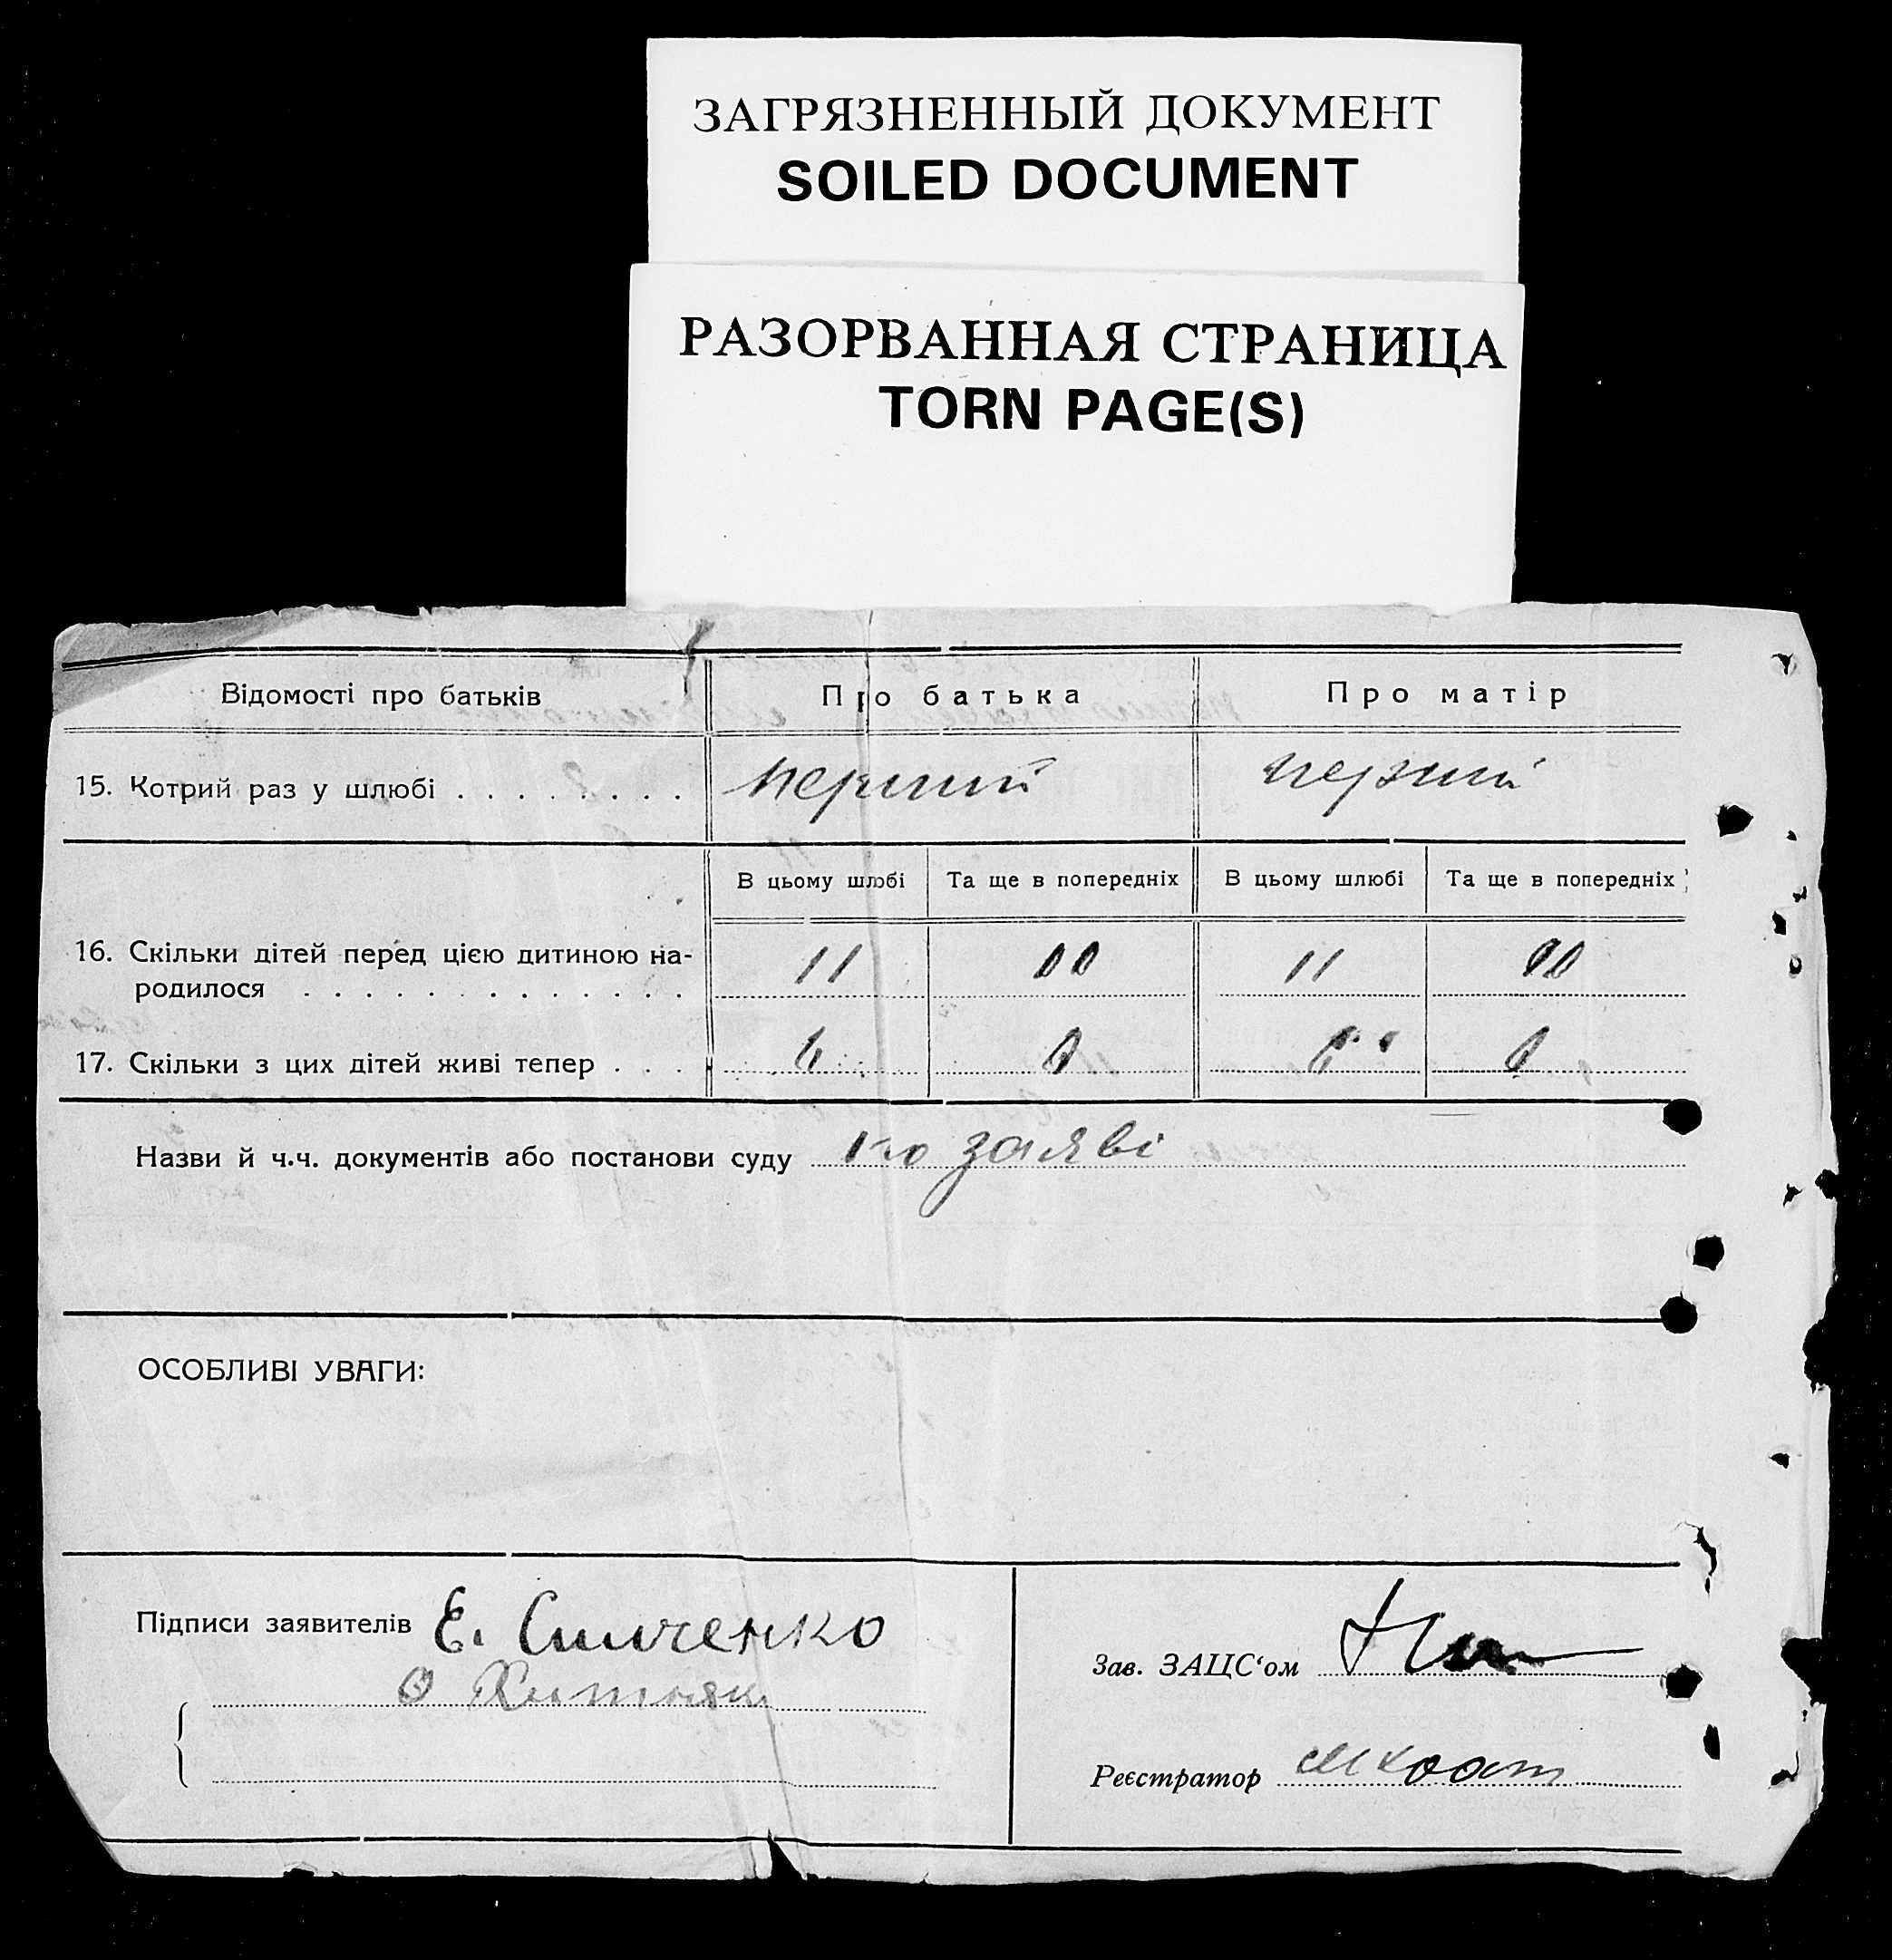 ЗАГРЯЗНЕННЫЙ ДОКУМЕНТ
SOILED DOCUMENT
РАЗОРВАННАЯ СТРАНИЦА
TORN PAGE(S)
Відомості про батьків Про батька Про матір
15. Котрий раз у шлюбі . . . . . . . . перший перший
В цьому шлюбі Та ще в попередніх В цьому шлюбі Та ще в попередніх
16. Скільки дітей перед цією дитиною на- 11 00 11 00
родилося . . . . . . . . . . . . .
17. Скільки з цих дітей живі тепер . . . . 6 0 6 0
Назви й ч.ч. документів або постанови суду по заяві
ОСОБЛИВІ УВАГИ:
Підписи заявителів Е. Симченко
О
Зав. ЗАЦС‘ом
Реєстратор